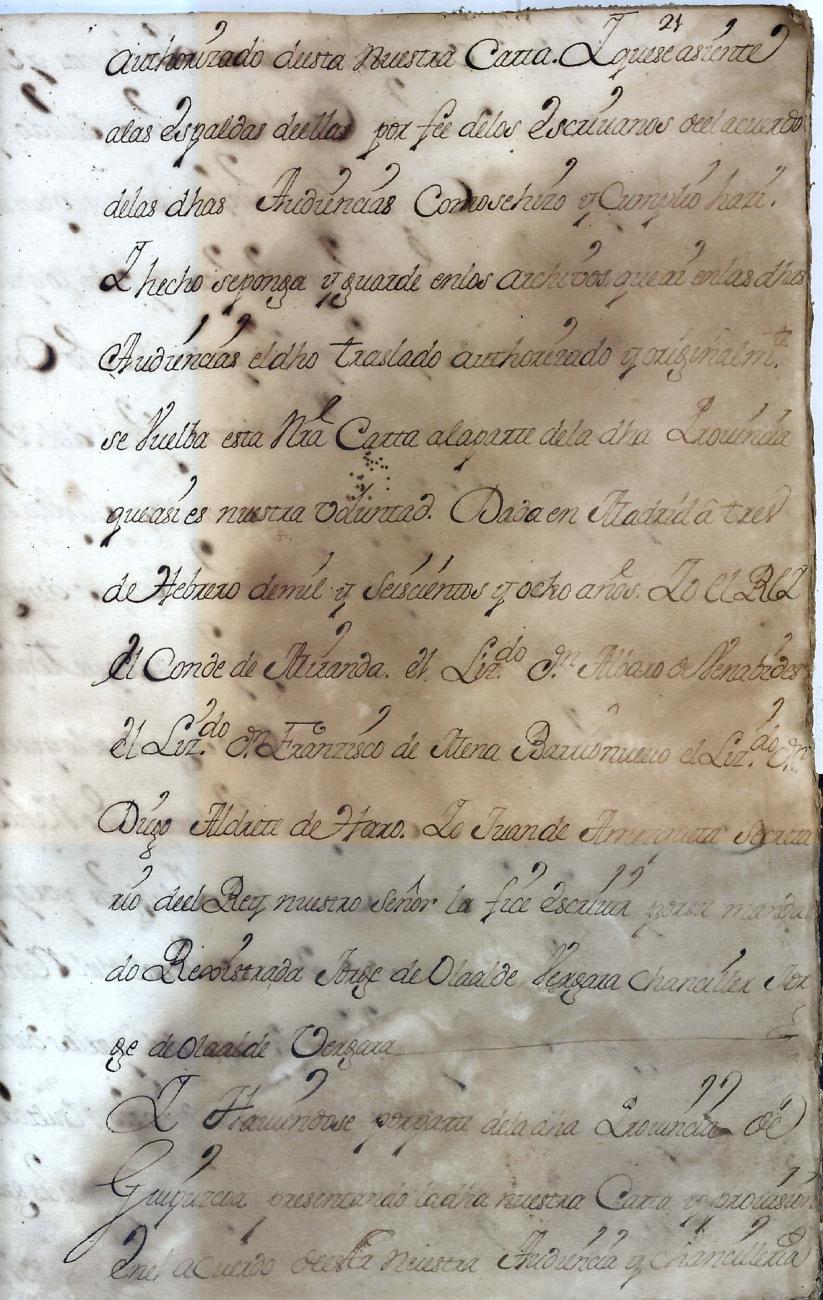 21
authorizado desta Nuestra Carta. Y quese asiente
alas espaldas deellas por fee delos Escriuanos deel acuerdo
delas dhas Audiencias Comosehizo y Cumplio hazi.
Y hecho seponga y guarde enlos archivos que ai enlas dhas
Audiencias eldho traslado authorizado y originalmte.
se Vuelba esta Nra Carta alaparte dela dha Prouincia
queasi es nuestra voluntad. Dada en Madrid â tres
de Hebrero demil y Seiscientos y ocho años. Yo el REY
el Conde de Miranda. el Lizdo. Dn. Albaro de Venabides
el Lizdo. Dn. Franzisco de Mena Barrionueuo el Lizdo. Dn.
Diego Aldrete de Haro. Yo Juan de Amezqueta Secreta
rio deel Rey nuestro señor la fice escriuir porsu manda
do Rexistrada Jorge de Olaalde Vergara chanciller Jor
ge de olaalde Vergara
Y Hauiendose porparte dela dha Prouincia de
Guipuzcoa presentando la dha nuestra Carta y prouision
enel acuerdo deesta Nuestra Audiencia y Chancilleria